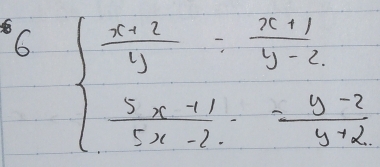 6 { (x+2)/y = (x+1)/(y-2.
(5x+1)/(5x-2. = (y-2)/(y+2..